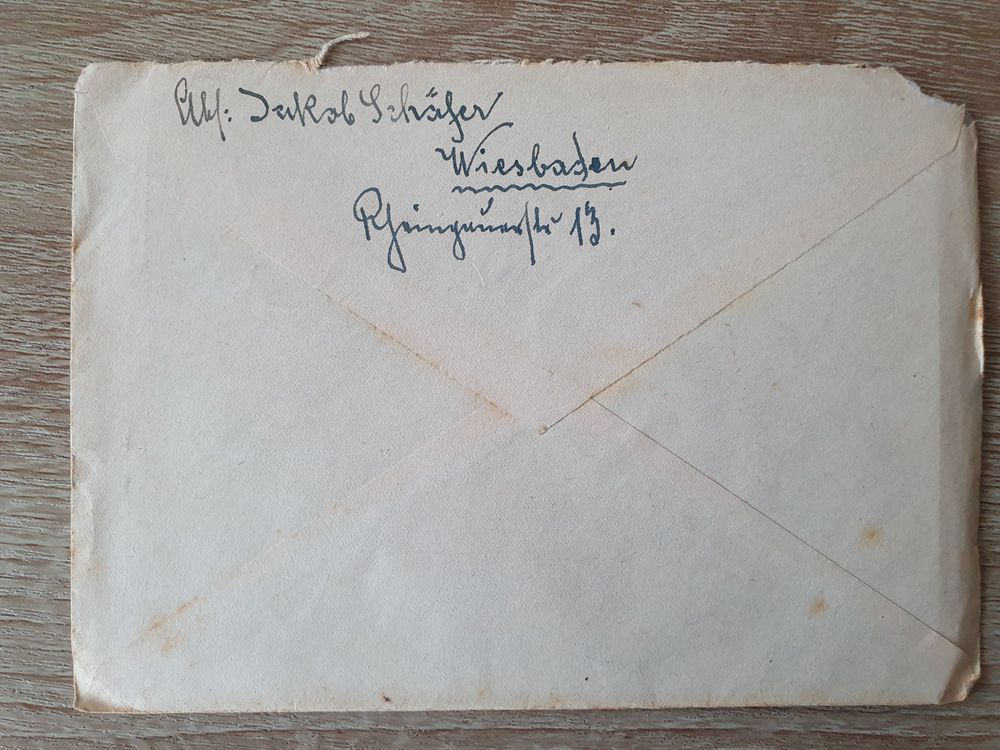 Abs: Jakob Schäfer
Wiesbaden
Rheingauerstr 13.